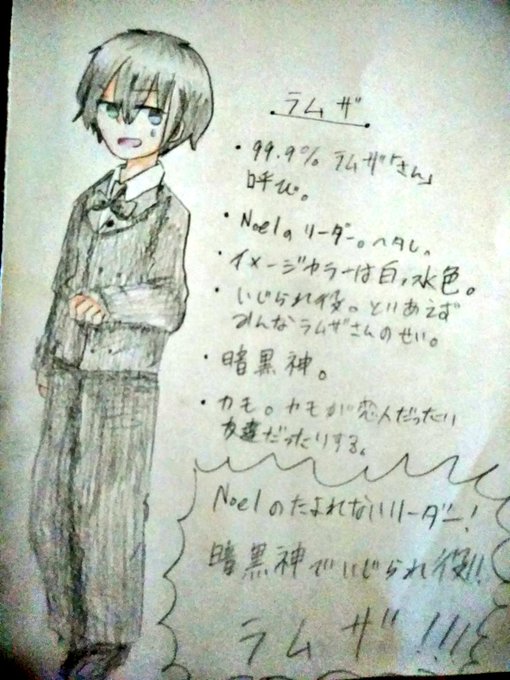 ラムザ
・99.9% ラムザ「さん」
呼び。
・Noelのリーダー。ヘタレ。
・イメージカラーは白、水色。
・いじられ役。とりあえず
みんなラムザさんのせい。
・暗黒神。
・カモ。カモが恋人だったり
友達だったりする。
Noelのたよれないリーダー!
暗黒神でいじられ役!!
ラムザ!!!